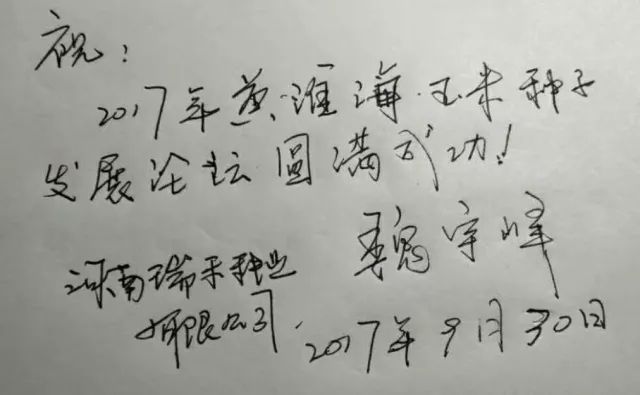 祝:
2017年黄淮海玉米种子
发展论坛圆满成功!
魏宇峰
河南瑞禾种业
有限公司.
2017年9月30日